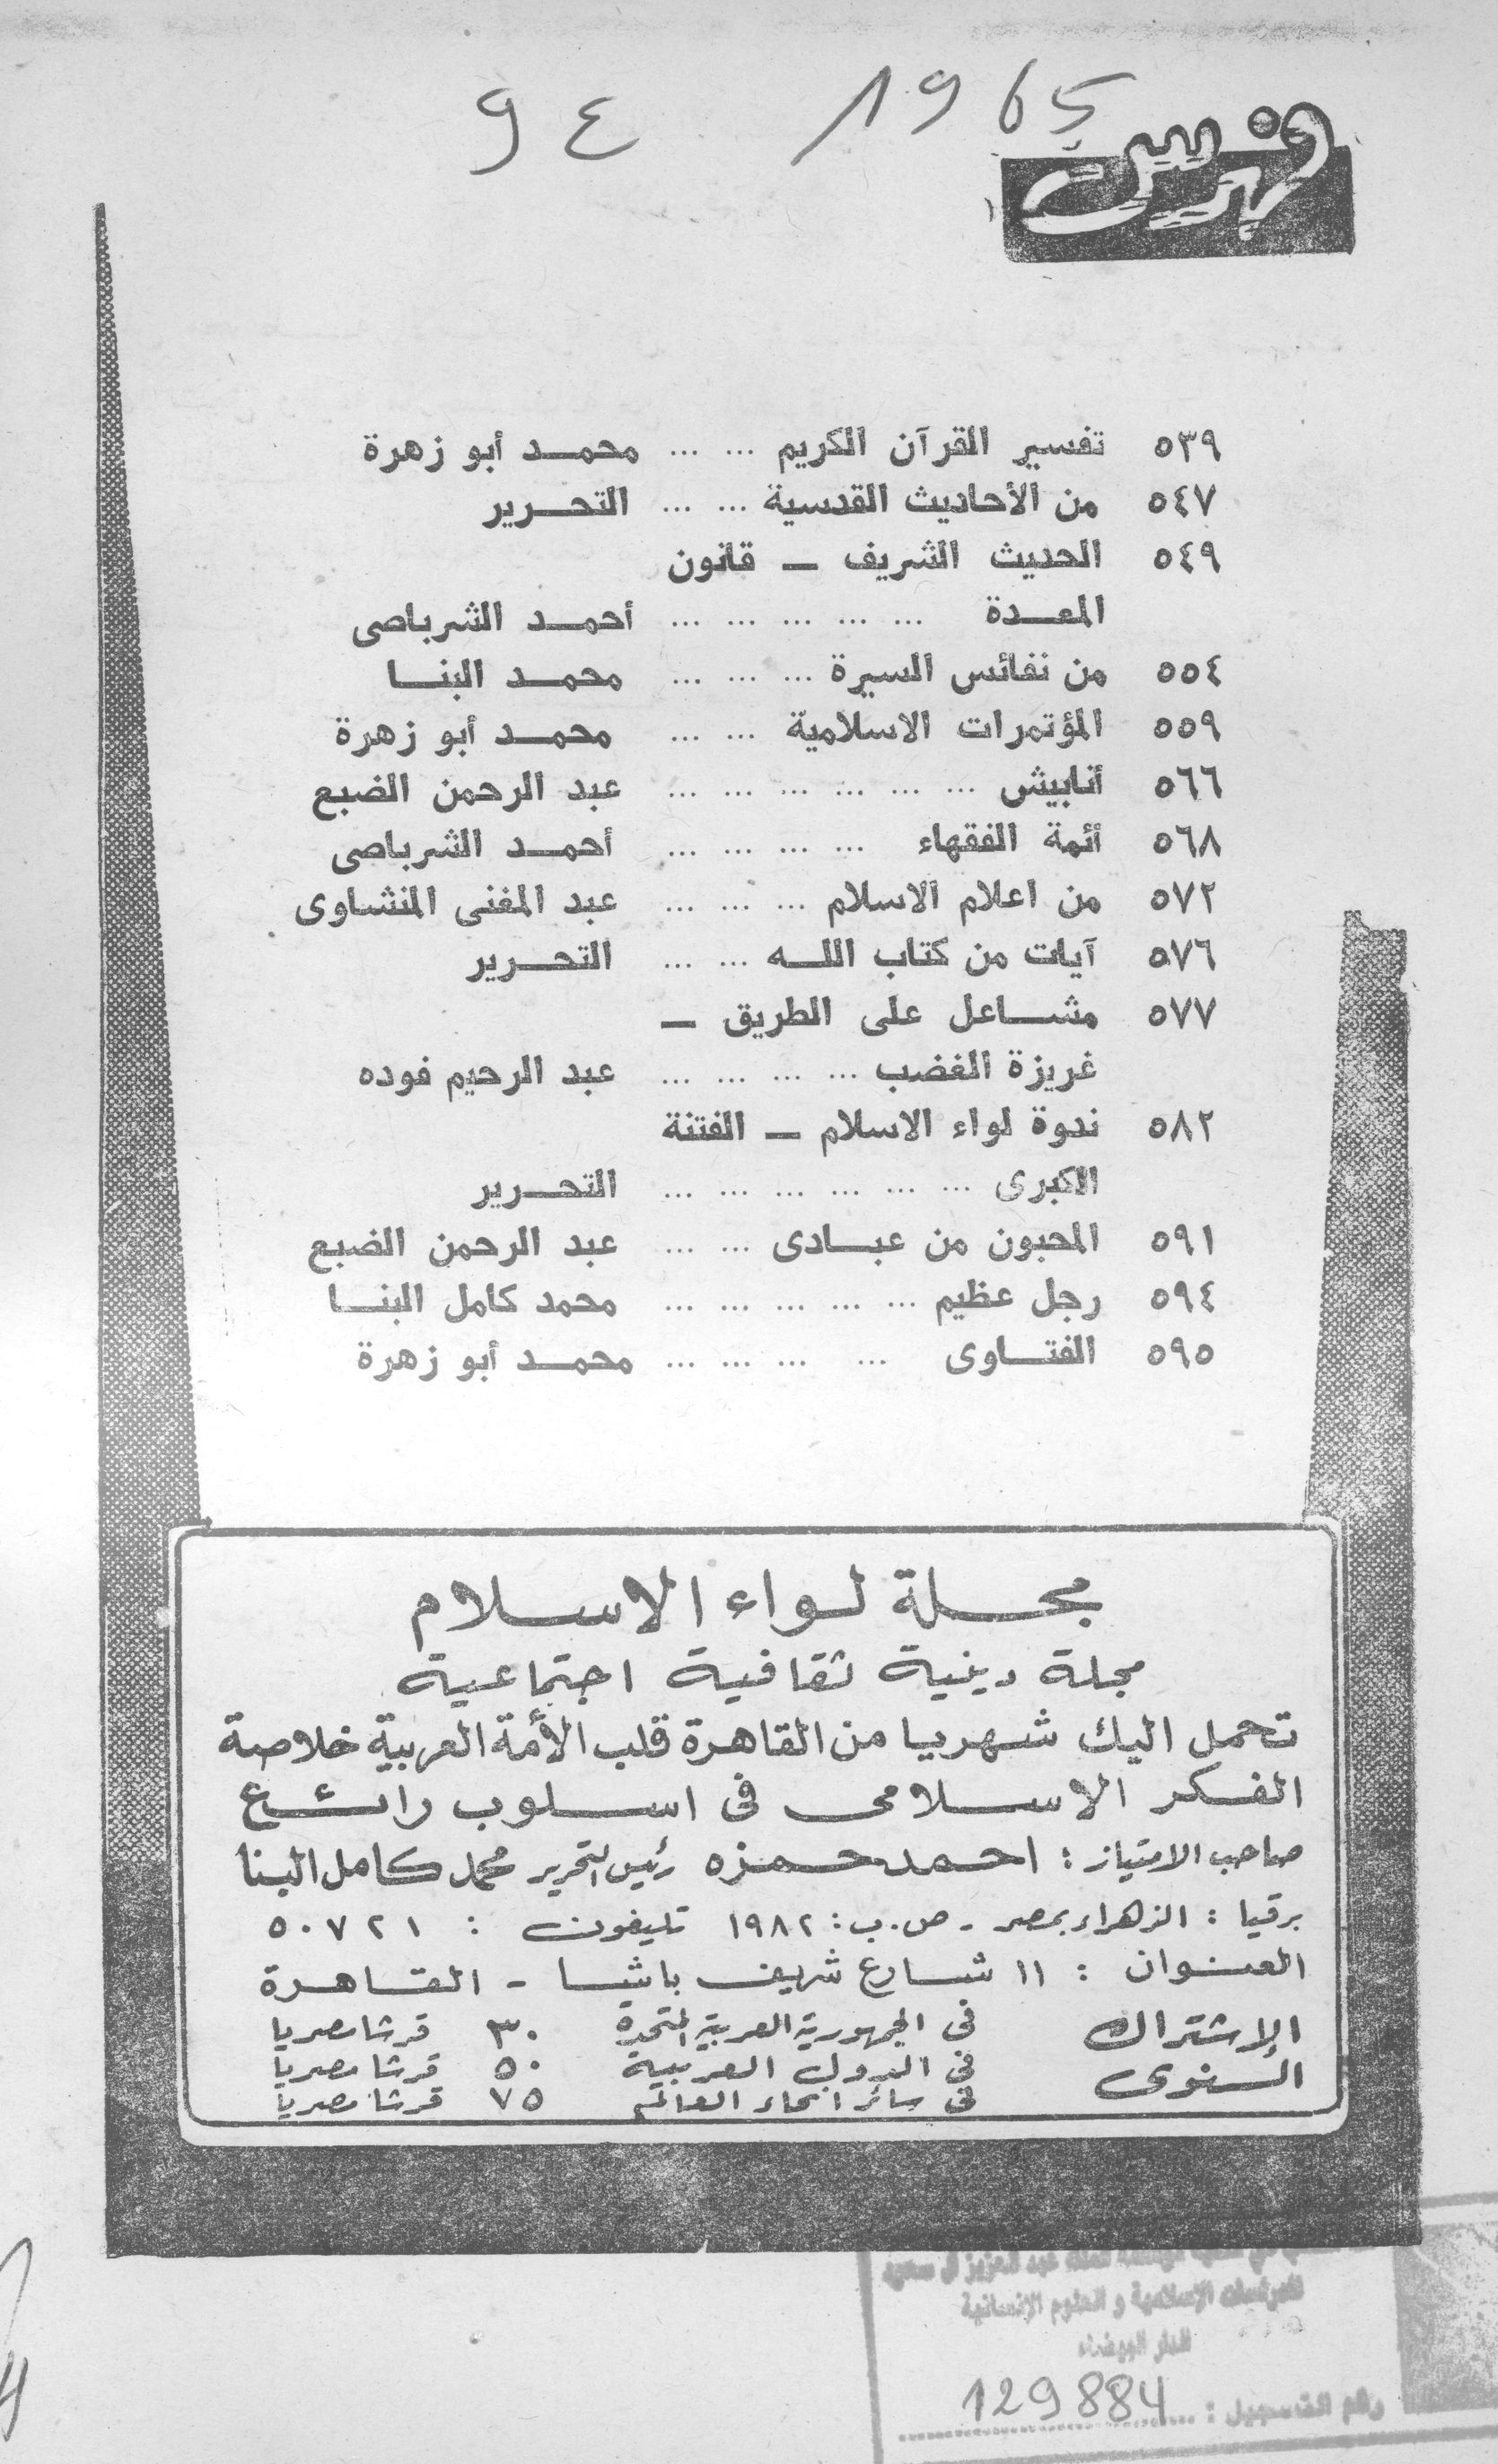 1965
94
فهرس
٥٣٩ تفسير القرآن الكريم ... ... محمد أبو زهرة
٥٤٧ من الأحاديث القدسية ... ... التحرير
٥٤٩ الحديث الشريف — قانون
المعدة ... ... ... ... ... أحمد الشرباصى
٥٥٤ من نفائس السيرة ... ... ... محمد البنا
٥٥٩ المؤتمرات الاسلامية ... ... محمد أبو زهرة
٥٦٦ أنابيش ... ... ... ... ... ... عبد الرحمن الضبع
٥٦٨ أئمة الفقهاء ... ... ... ... أحمد الشرباصى
٥٧٢ من اعلام الاسلام ... ... ... عبد المغنى المنشاوى
٥٧٦ آيات من كتاب الله ... ... التحرير
٥٧٧ مشاعل على الطريق —
غريزة الغضب ... ... ... ... عبد الرحيم فوده
٥٨٢ ندوة لواء الاسلام — الفتنة
الكبرى ... ... ... ... ... ... التحرير
٥٩١ المحبون من عبادى ... ... عبد الرحمن الضبع
٥٩٤ رجل عظيم ... ... ... ... ... محمد كامل البنا
٥٩٥ الفتاوى ... ... ... ... محمد أبو زهرة
مجلة لواء الاسلام
مجلة دينية ثقافية اجتماعية
تحمل اليك شهريا من القاهرة قلب الأمة العربية خلاصة
الفكر الاسلامى فى اسلوب رائع
صاحب الامتياز : احمد حمزه رئيس التحرير محمد كامل البنا
برقيا : الزهراء بمصر - ص.ب : ١٩٨٢ تليفون : ٥٠٧٢١
العنوان : ١١ شارع شريف باشا - القاهرة
الإشتراك السنوى
فى الجمهورية العربية المتحدة ٣٠ قرشا مصريا
فى الدول العربية ٥٠ قرشا مصريا
فى سائر انحاء العالم ٧٥ قرشا مصريا
عبد العزيز آل سعود
للدراسات الإسلامية و العلوم الإنسانية
الدار البيضاء
رقم التسجيل : 129884